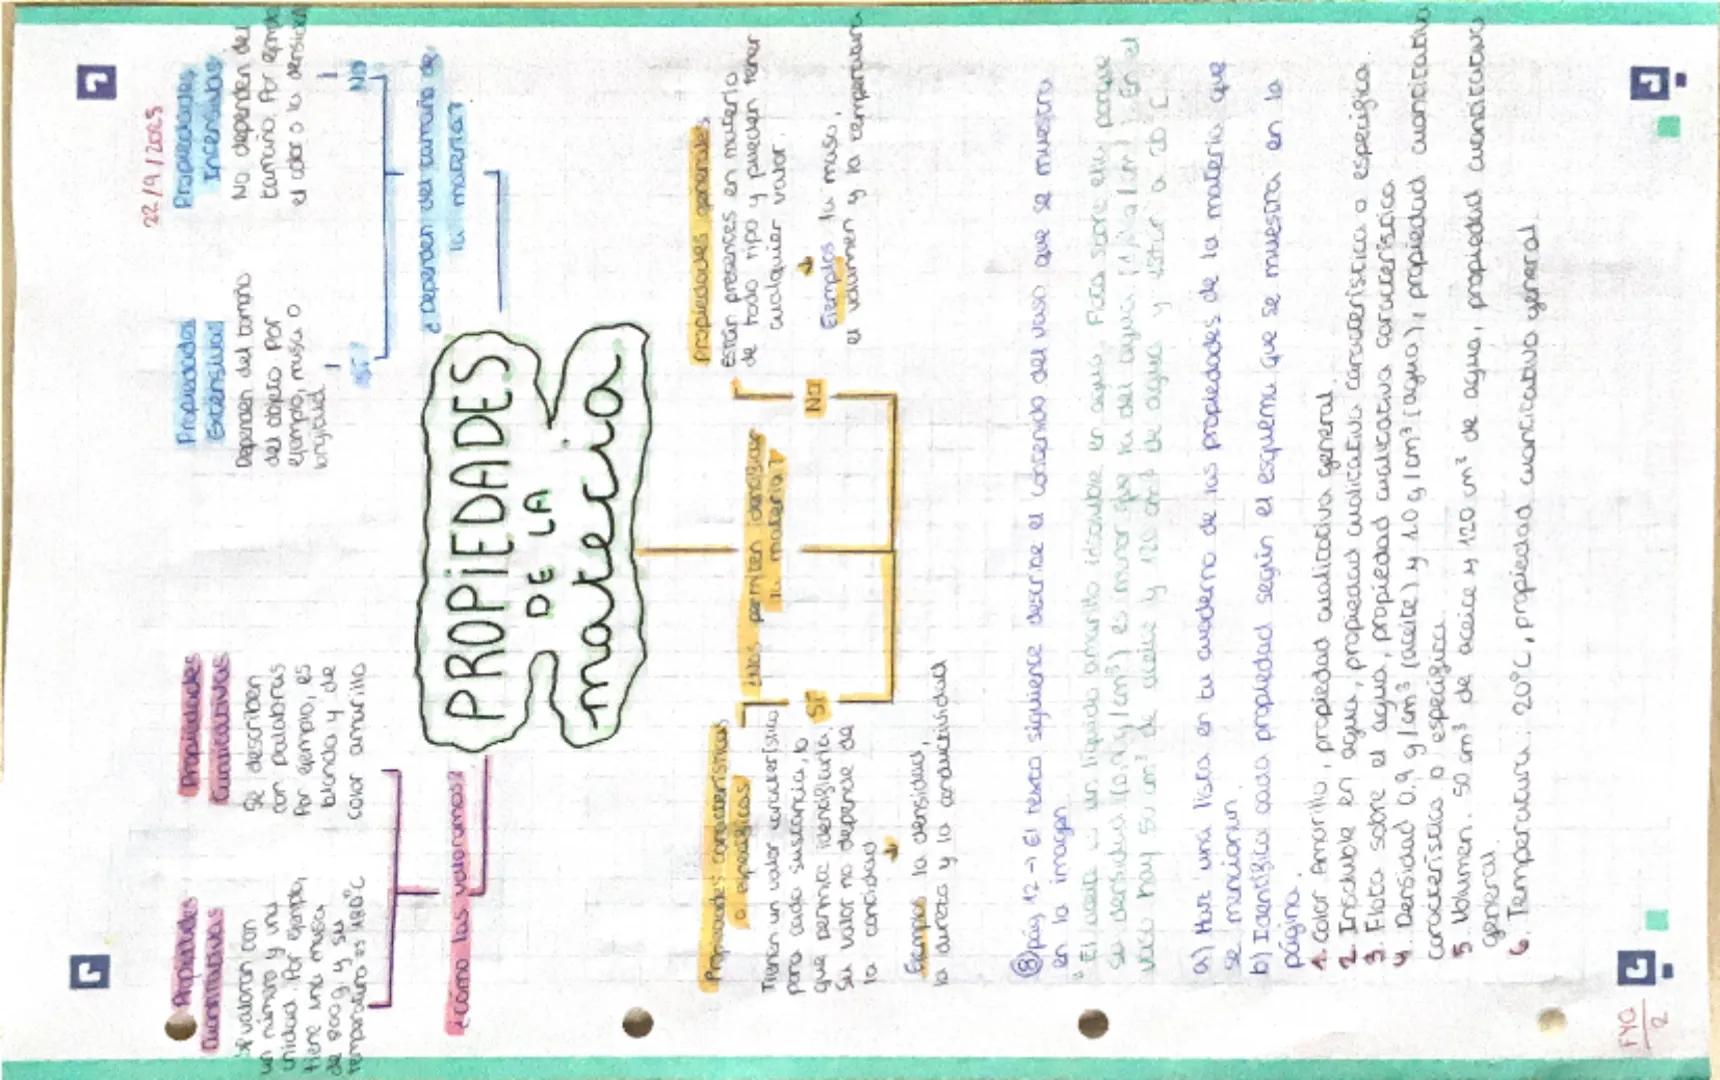 22/9/2025
Propiedades
Cuantitativas
Se valoran con
un número y una
unidad. Por ejemplo,
tiene una masa
de 800g y su
temperatura es 180°C
Propiedades
Cualitativas
Se describen
con palabras
Por ejemplo, es
blanda y de
color amarillo
Propiedades
Extensivas
Dependen del tamaño
del objeto. Por
ejemplo, masa o
longitud
Propiedades
Intensivas
No dependen del
tamaño. Por ejemplo
el color o la densidad
SÍ
NO
¿Cómo las valoramos?
¿Dependen del tamaño de
la materia?
PROPIEDADES
DE LA
materia
Propiedades características
o específicas
Tienen un valor característico
para cada sustancia, lo
que permite identificarla,
su valor no depende de
la cantidad
Ejemplos la densidad,
la dureza y la conductividad
¿Nos permiten identificar
la materia?
SÍ
NO
Propiedades generales
Están presentes en materia
de todo tipo y pueden tener
cualquier valor.
Ejemplos la masa,
el volumen y la temperatura
⑧ pág 12 → El texto siguiente describe el contenido del vaso que se muestra
en la imagen
El es un líquido amarillo insoluble en agua. Flota sobre ella porque
su densidad (0,9 g/cm³) es menor que la del agua (1 g/cm³). En el
vaso hay 50 cm³ de aceite y 120 cm³ de agua y están a 20°C
a) Haz una lista en tu cuaderno de las propiedades de la materia que
se mencionan.
b) Identifica cada propiedad según el esquema que se muestra en la
página.
1. Color Amarillo, propiedad cualitativa general.
2. Insoluble en agua, propiedad cualitativa característica o específica.
3. Flota sobre el agua, propiedad cualitativa característica
4. Densidad 0,9 g/cm³ (aceite) y 1.0 g/cm³ (agua), propiedad cuantitativa
característica o específica
5. Volumen. 50 cm³ de aceite y 120 cm³ de agua, propiedad cuantitativa
general.
6. Temperatura. 20°C, propiedad cuantitativa general
FYQ
2